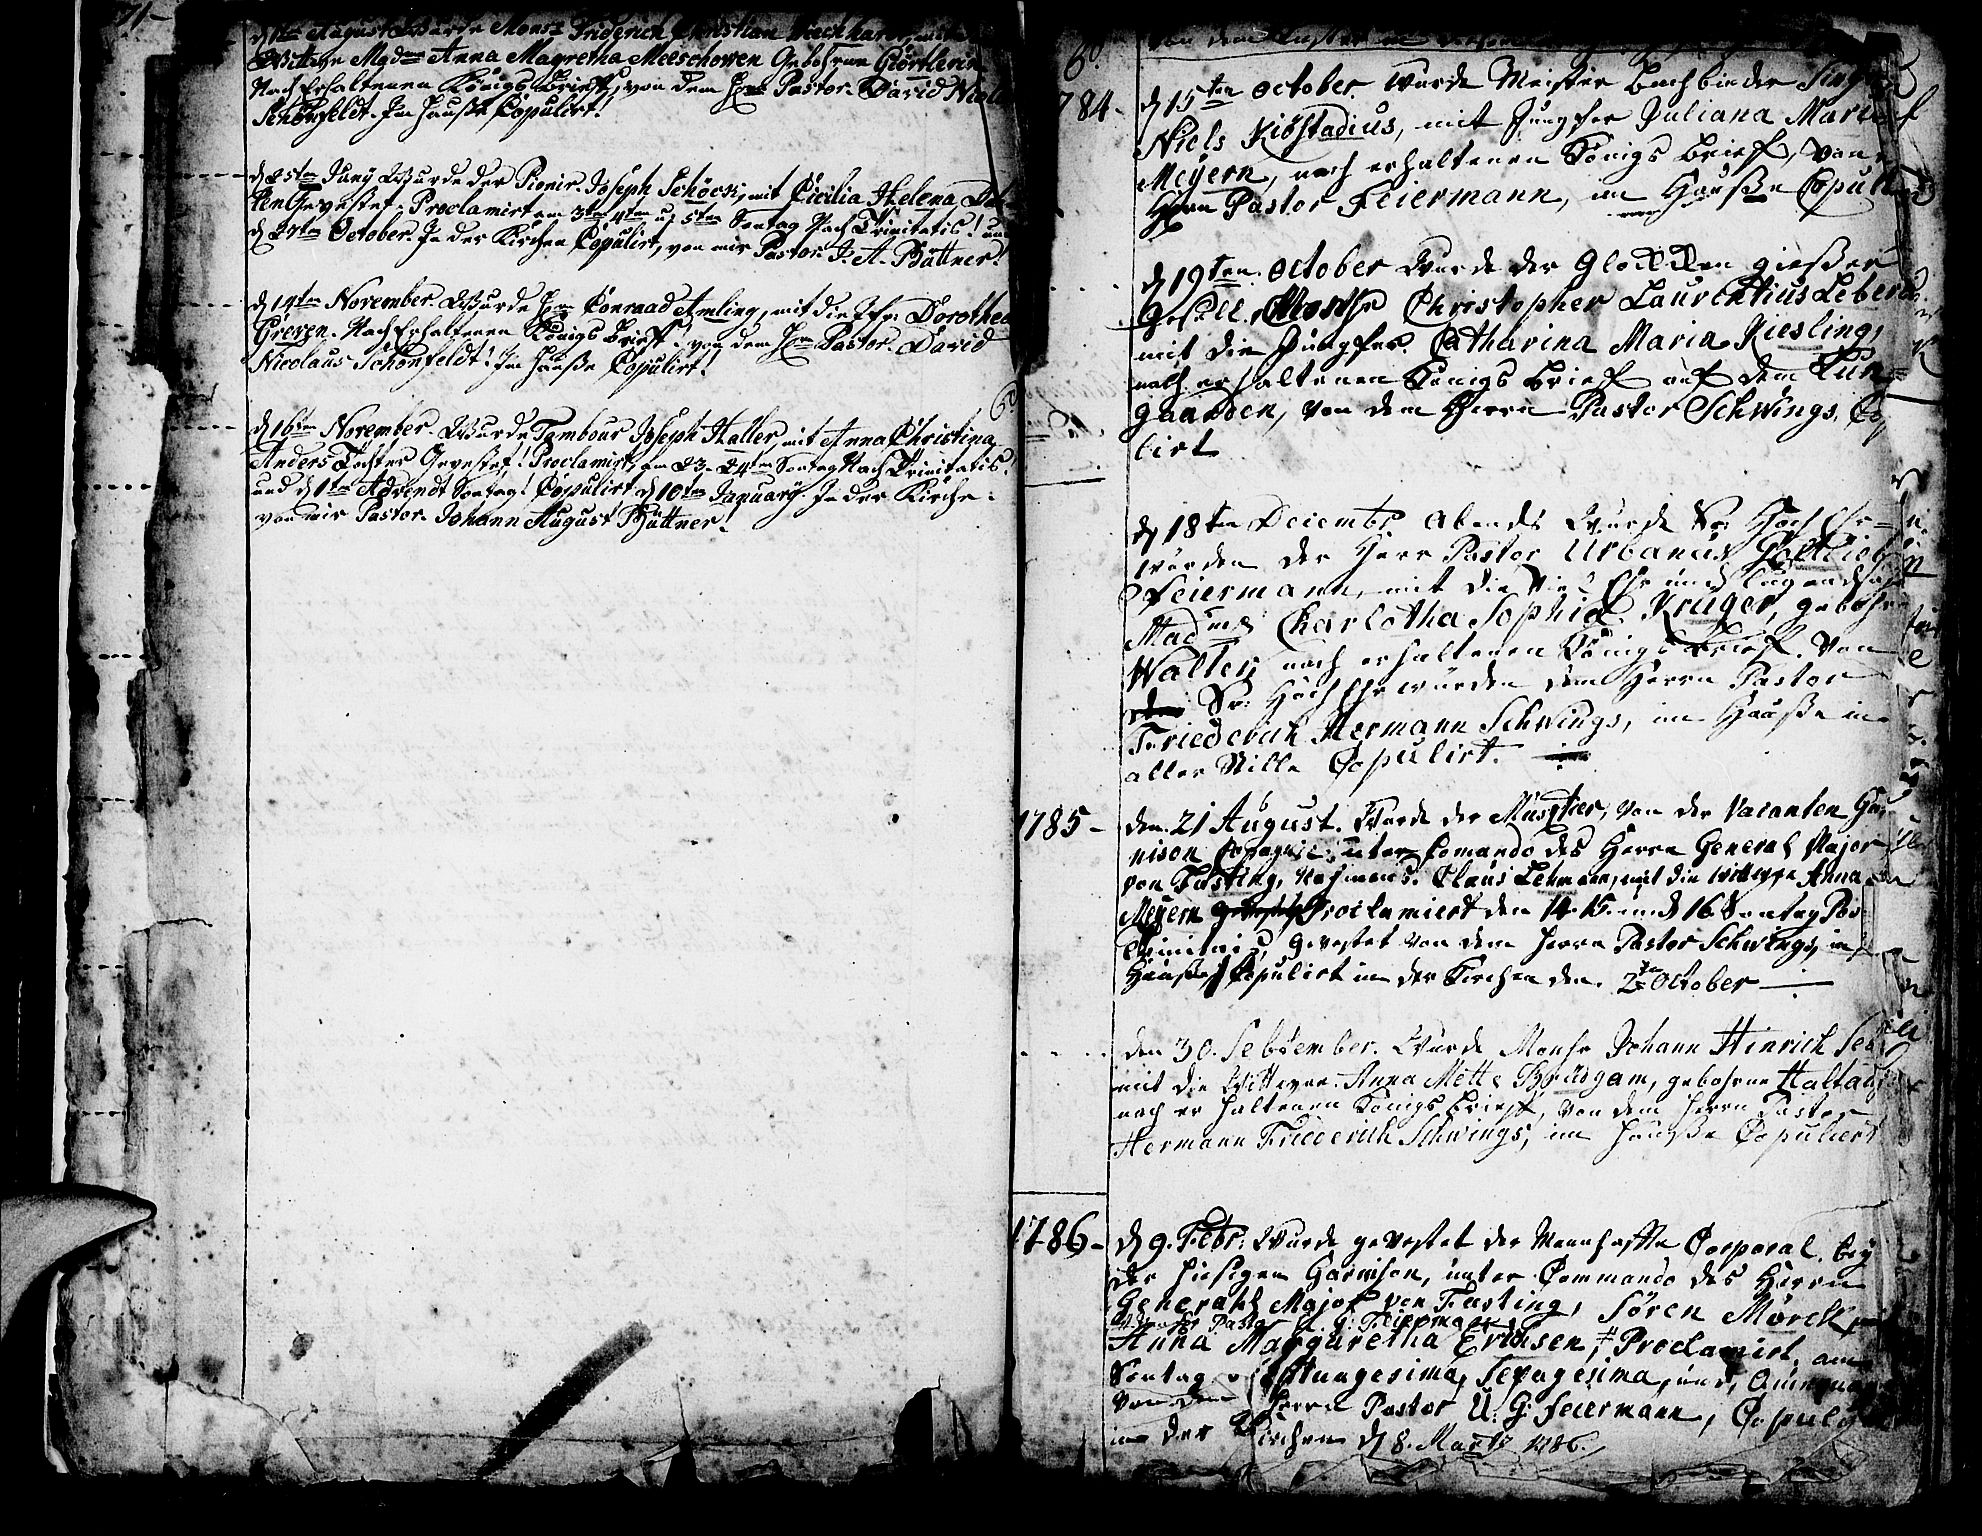 71-
d 1ten August Wurde Mons: Friderich Christian
Wittwe Mgdme Anna Magretha Meeschowen Gebohrne Giörtlerin
Nach Erhaltenen Königs Brieff, von dem Hrn Pastor David Nicol
Schönfeldt. Im Hauße Copulirt!
d 25ten Juny Wurde der Pionir Joseph Schöck, mit Cicilia Helena
Gevestet. Proclamirt am 3ten 4ten u 5ten Sontag Nach Trinitatis! und
d 27ten October. In der Kirchen Copulirt, von mir Pastor J. A. Büttner.
d 14ten November. Wurde Hrn Conraad Amling, mit die Jfr. Dorothea
Greven. Nach Erhaltenen Königs Brieff. von dem Hrn Pastor. David
Nicolaus Schönfeldt! Im Hauße Copulirt!
d 16ten November. Wurde Tambour Joseph Haller, mit Anna Christina
Anders Tochter Gevestet! Proclamirt, am 23. 24ten Sontag Nach Trinitatis!
und d 1ten Advendt Sontag! Copulirt d 10ten January. In der Kirche.
von mir Pastor. Johann August Büttner.
1784- d 15ten October wurde Meister Buchbinder
Niels Kiöstadius, mit Jungfer Juliana Maria
Meyern, nach erhaltenen Königs Brief, von
Herrn Pastor Feiermann, im Hauße Copulirt
d 19ten October Wurde der Glocken gießer
Gesell Mosje Christopher Laurentius Leber
mit die Jungfer Catharina Maria Kiesling,
nach erhaltenen Königs Brief auf dem Tun-
gaarden, von dem Herrn Pastor Schwings Co
lirt
d 18ten Decembr Abends Wurde Sr: Hoch Ehr-
würden der Herr Pastor Urbanus Gottlieb
Feiermann, mit die Viel Ehr und Tugendsahme
Madme Charlotha Sophia Krüger, gebohrne
Walter, nach erhaltenen Königs Brief. von
Sr: Hoch Ehrwürden dem Herrn Pastor
Friederich Hermann Schwings, im Hauße in
aller Stille Copulirt.
1785- den 21 August. Wurde der Musqtier, von der Vacanten Gar-
nison Copagnie, unter Comando des Herrn General Major
von Fasting, Nahmens Claus Lehmann, mit die wittwe Anna
Meyern Proclamiert den 14. 15. und 16 Sontag Post
Trinitatis, gevestet von dem Herrn Pastor Schwings, im
Hauße, Copulirt in der Kirchen den 2ten October
den 30. Sebtember. Wurde Monsr Johann Hinrich
mit die Wittwe Anna Mette Brüdgam, gebohrne
nach erhaltenen Königs Brieff, von dem Herrn Pastor
Hermann Friederich Schwings, im Hauße Copuliert
1786- d 9. Febr: Wurde gevestet der Mannhaffte Corporal bey
der hiesigen Garnison, unter Commando des Herrn
Generahl Major von Fasting, Sören Mörck, mit
Pastor U. G. Feiermann
Anna Margaretha Erichsen, Proclamirt am
Sontag Septuagesima, und
von dem Herrn Pastor U. G. Feiermann, Copulirt
in der Kirchen d 8. Marty 1786.